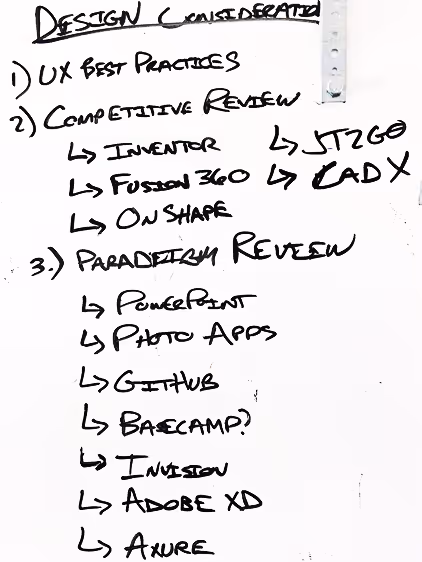 DESIGN CONSIDERATIO
1) UX BEST PRACTICES
2) COMPETITIVE REVIEW
↳ INVENTOR ↳ JT2GO
↳ FUSION 360 ↳ CADX
↳ ONSHAPE
3.) PARADEIGM REVIEW
↳ POWERPOINT
↳ PHOTO APPS
↳ GITHUB
↳ BASECAMP?
↳ INVISION
↳ ADOBE XD
↳ AXURE